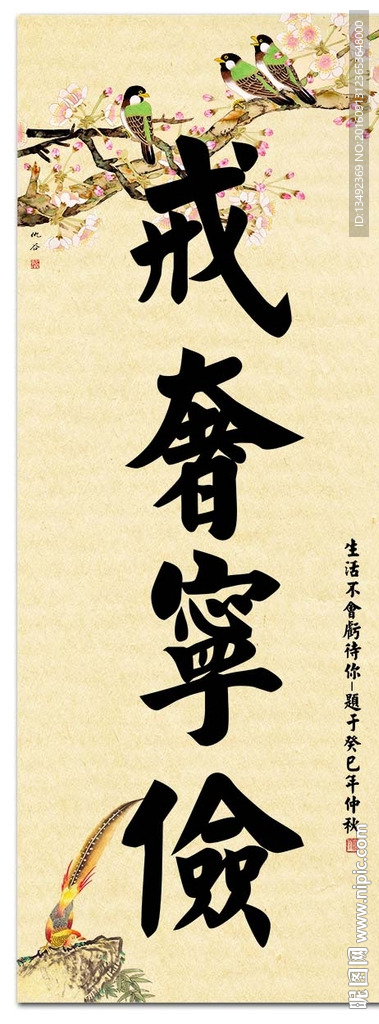 戒奢寧儉
生活不會虧待你－題于癸巳年仲秋
仇谷
昵图网 www.nipic.com
ID:13492369 NO:20160913123653648000